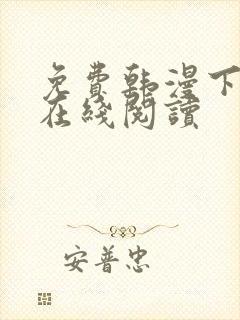 免费韩漫下
在綫閱讀
安普忠